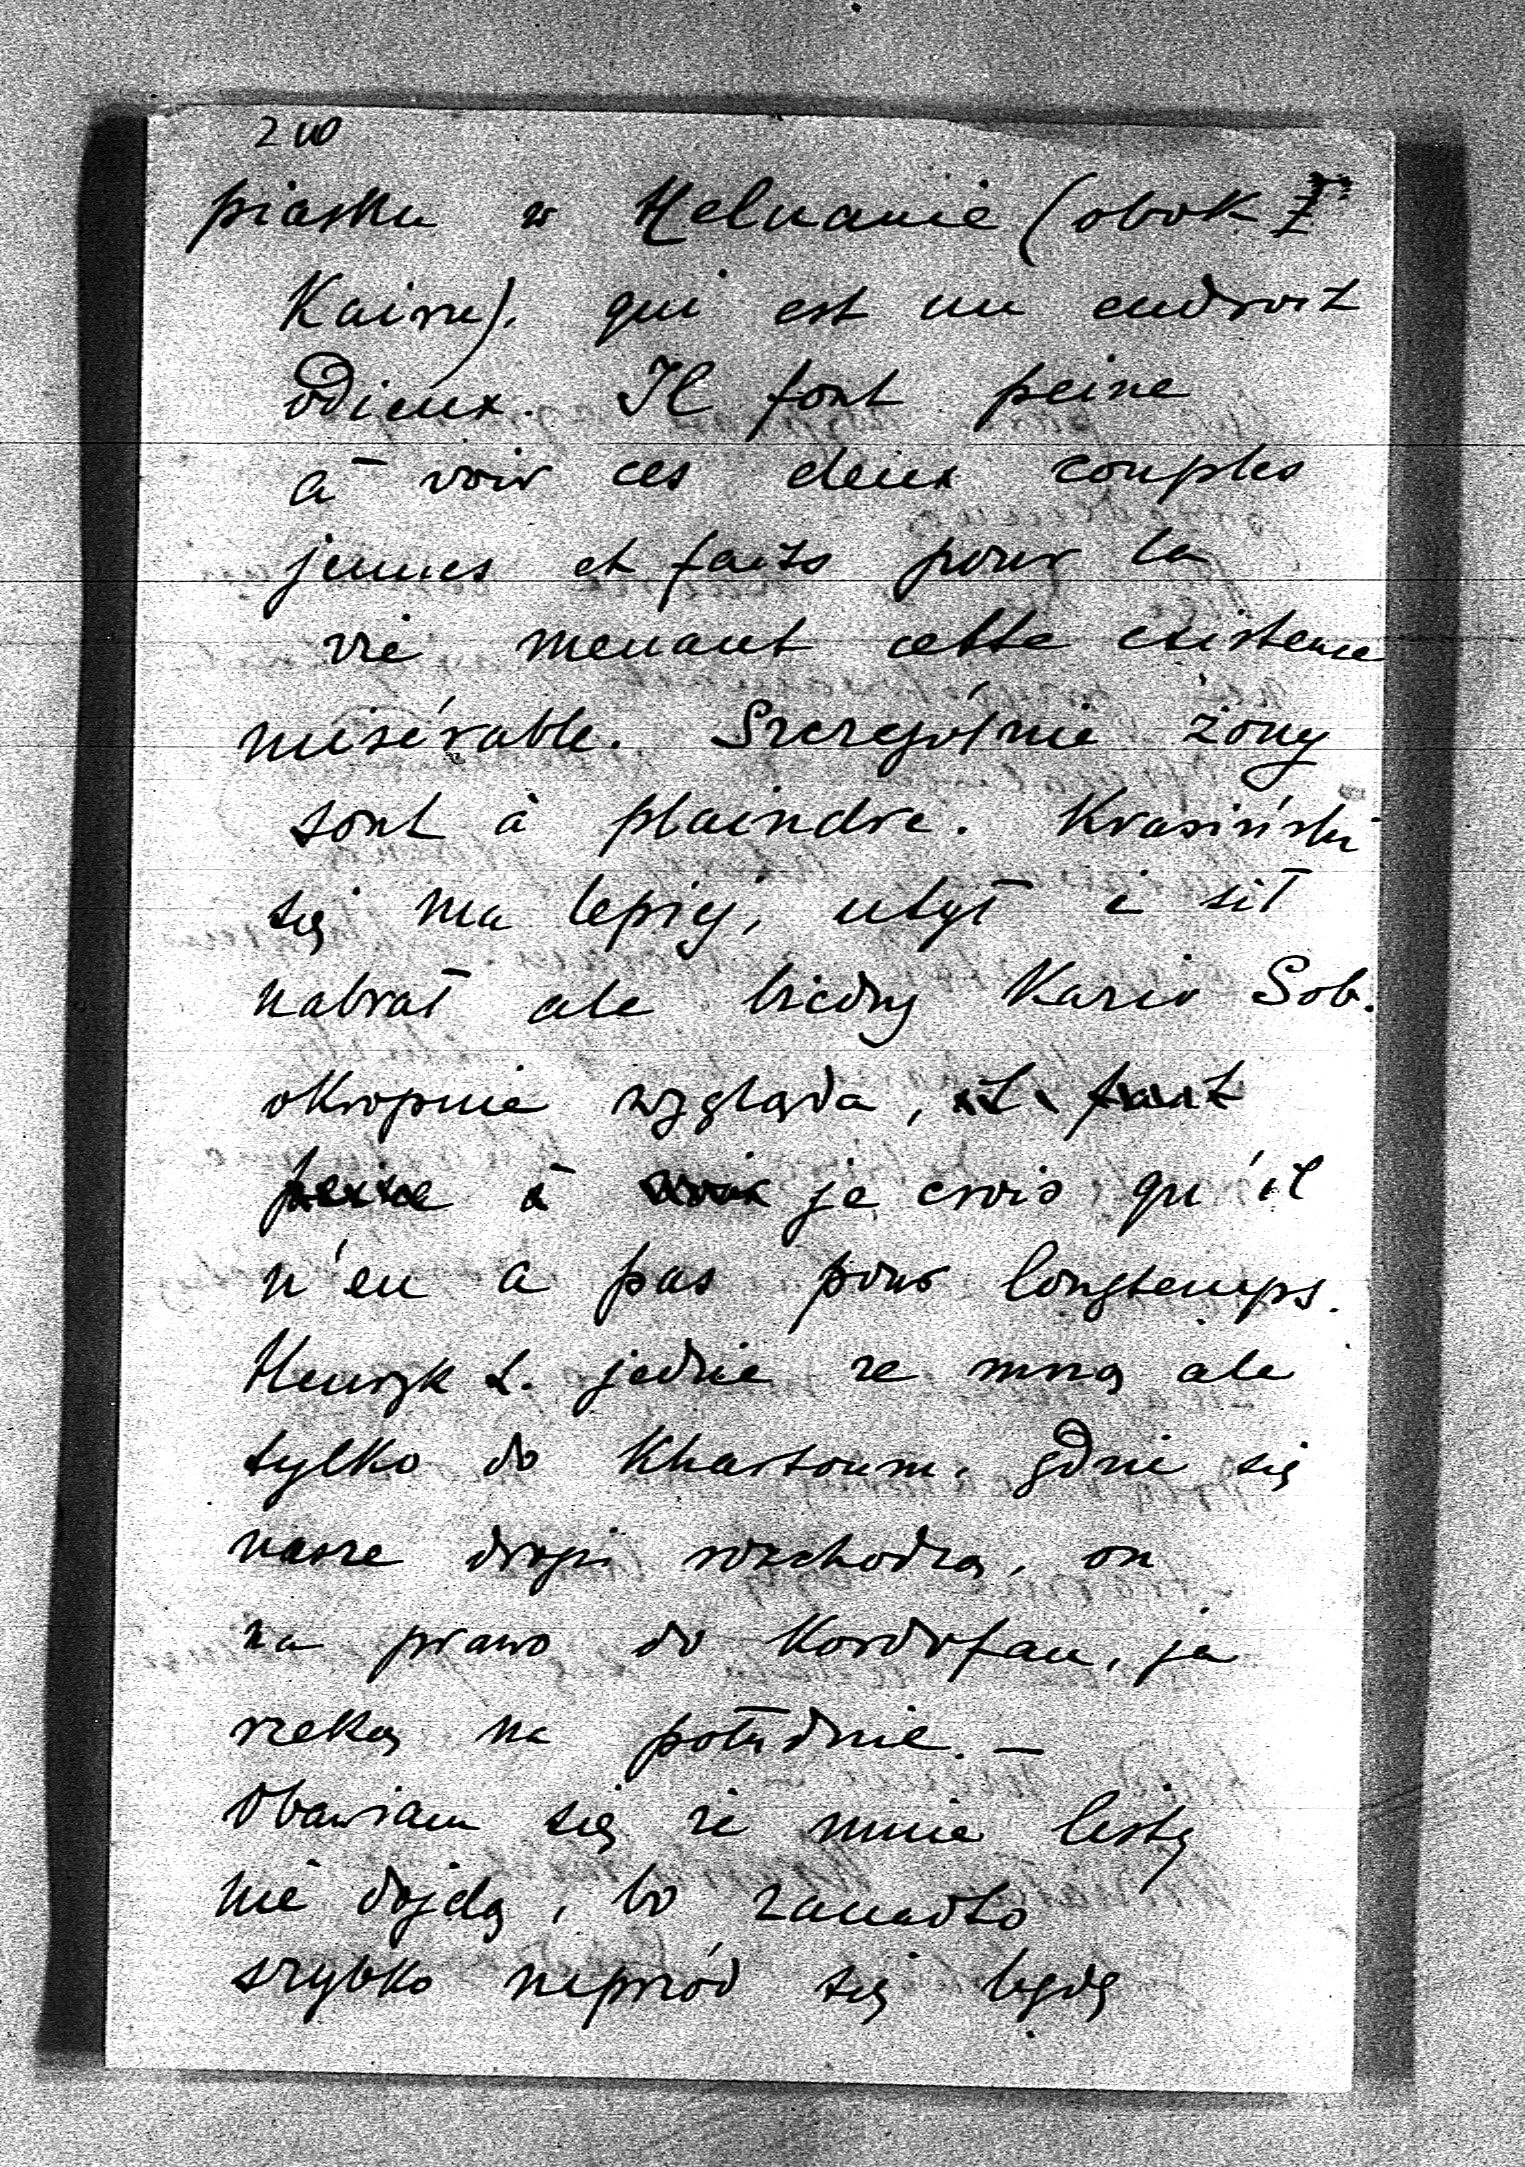 200
piasku w Heluanie (obok
Kairu). qui est un endroit
odieux. Il font peine
à voir ces deux couples
jeunes et faits pour la
vie menant cette existence
misérable. Szczególnie żony
sont à plaindre. Krasiński
się ma lepiej, utył i sił
nabrał ale biedny Kazio Sob.
okropnie wygląda, il fait
peine à voir je crois qu'il
n'en a pas pour longtemps.
Henryk L. jedzie ze mną ale
tylko do Khartoum, gdzie się
nasze drogi rozchodzą, on
na prawo do Kordofan, ja
rzeką na południe. —
Obawiam się że mnie listy
nie dojdą, bo zanadto
szybko naprzód się będę